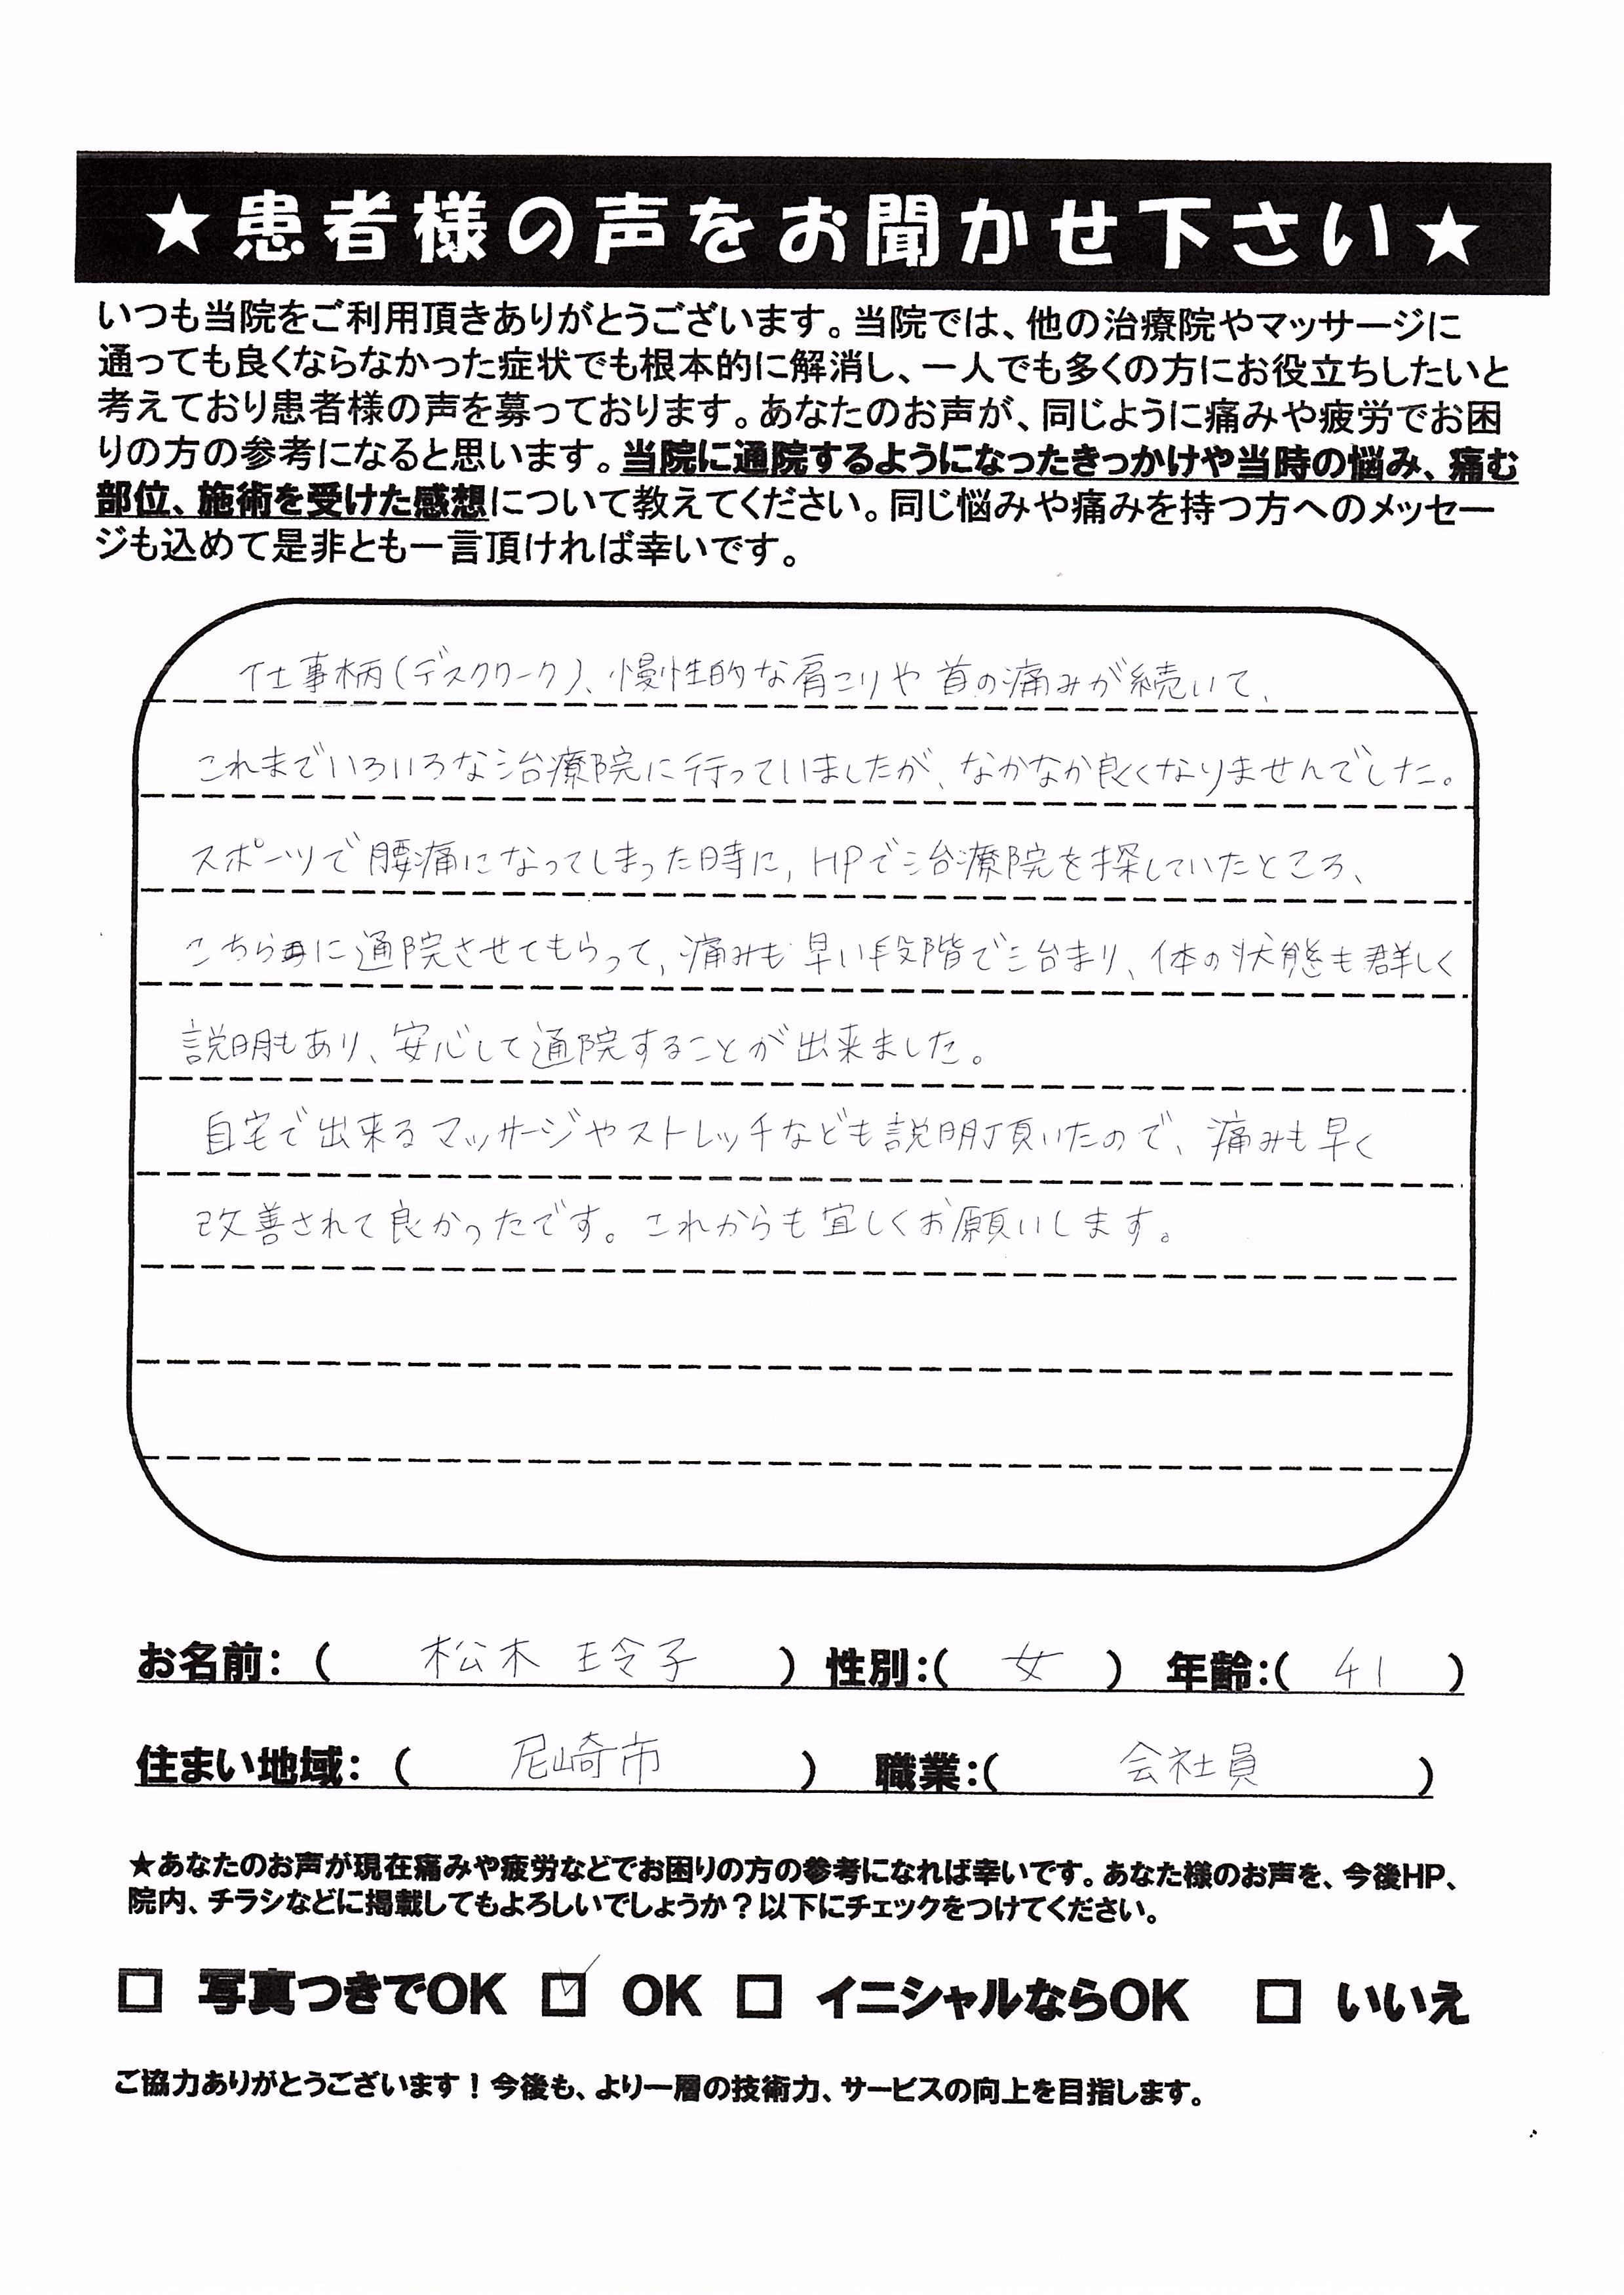 ★患者様の声をお聞かせ下さい★
いつも当院をご利用頂きありがとうございます。当院では、他の治療院やマッサージに
通っても良くならなかった症状でも根本的に解消し、一人でも多くの方にお役立ちしたいと
考えており患者様の声を募っております。あなたのお声が、同じように痛みや疲労でお困
りの方の参考になると思います。当院に通院するようになったきっかけや当時の悩み、痛む
部位、施術を受けた感想について教えてください。同じ悩みや痛みを持つ方へのメッセー
ジも込めて是非とも一言頂ければ幸いです。
仕事柄(デスクワーク)、慢性的な肩こりや首の痛みが続いて、
これまでいろいろな治療院に行っていましたが、なかなか良くなりませんでした。
スポーツで腰痛になってしまった時に,HPで治療院を探していたところ、
こちらに通院させてもらって、痛みも早い段階で治まり、体の状態も群しく
説明もあり、安心して通院することが出来ました。
自宅で出来るマッサージやストレッチなども説明頂いたので、痛みも早く
改善されて良かったです。これからも宜しくお願いします。
お名前:(松木 玲子)性別:(女)年齢:(41)
住まい地域:(尼崎市)職業:(会社員)
★あなたのお声が現在痛みや疲労などでお困りの方の参考になれば幸いです。あなた様のお声を、今後HP、
院内、チラシなどに掲載してもよろしいでしょうか?以下にチェックをつけてください。
□ 写真つきでOK ☑ OK □ イニシャルならOK □ いいえ
ご協力ありがとうございます!今後も、より一層の技術力、サービスの向上を目指します。